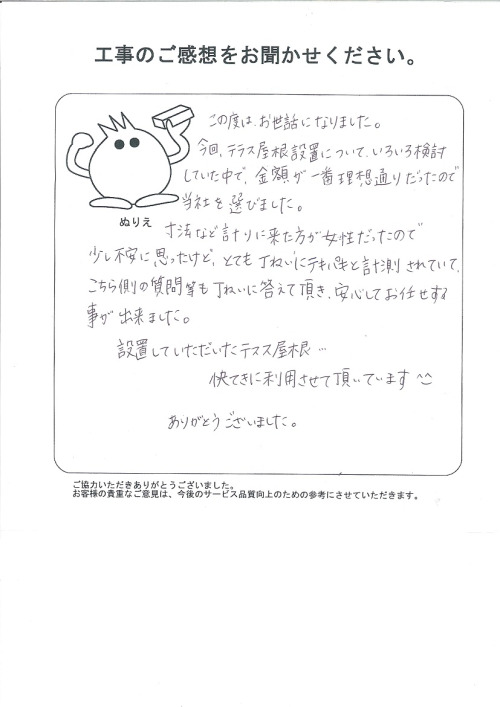 工事のご感想をお聞かせください。
この度は、お世話になりました。
今回、テラス屋根設置について、いろいろ検討
していた中で、金額が一番理想通りだったので
当社を選びました。
ぬりえ
寸法など計りに来た方が女性だったので
少し不安に思ったけど、とても丁ねいにテキパキと計測されていて、
こちら側の質問等も丁ねいに答えて頂き、安心してお任せする
事が出来ました。
設置していただいたテスス屋根…
快てきに利用させて頂いています^^
ありがとうございました。
ご協力いただきありがとうございました。
お客様の貴重なご意見は、今後のサービス品質向上のための参考にさせていただきます。